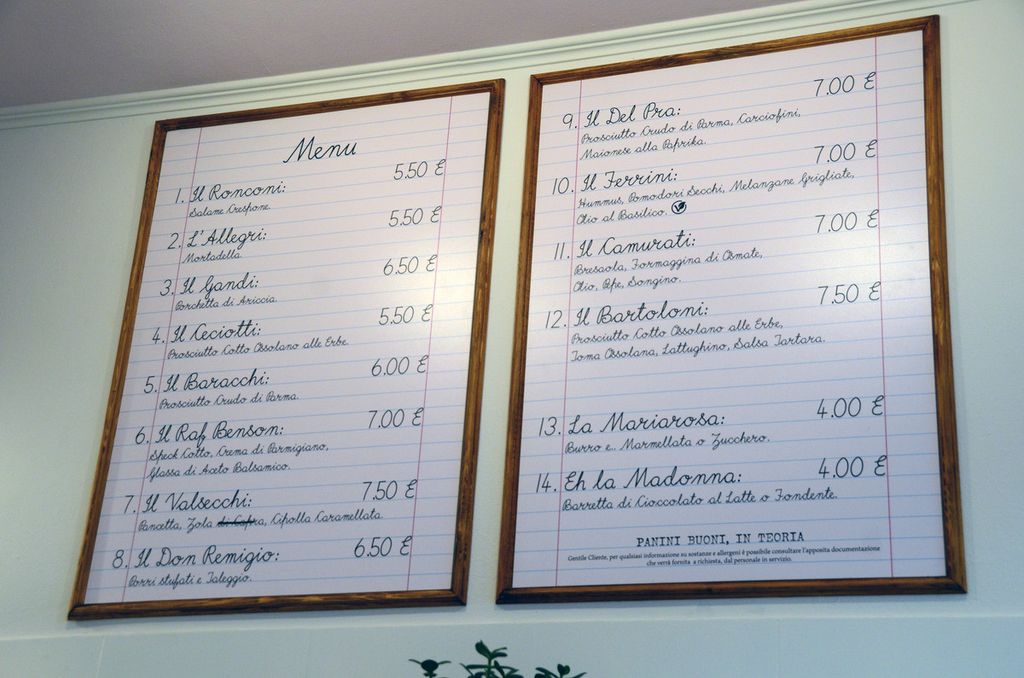 Menu
1. Il Ronconi: 5.50 €
Salame Crespone.
2. L'Allegri: 5.50 €
Mortadella.
3. Il Gandi: 6.50 €
Porchetta di Ariccia.
4. Il Ceciotti: 5.50 €
Prosciutto Cotto Ossolano alle Erbe.
5. Il Baracchi: 6.00 €
Prosciutto Crudo di Parma.
6. Il Raf Benson: 7.00 €
Speck Cotto, Crema di Parmigiano,
Glassa di Aceto Balsamico.
7. Il Valsecchi: 7.50 €
Pancetta, Zola di Capra, Cipolla Caramellata.
8. Il Don Remigio: 6.50 €
Porri stufati e Taleggio.
9. Il Del Pra: 7.00 €
Prosciutto Crudo di Parma, Carciofini,
Maionese alla Paprika.
10. Il Ferrini: 7.00 €
Hummus, Pomodori Secchi, Melanzane Grigliate,
Olio al Basilico.
11. Il Camurati: 7.00 €
Bresaola, Formaggina di Osmate,
Olio, Pepe, Songino.
12. Il Bartoloni: 7.50 €
Prosciutto Cotto Ossolano alle Erbe,
Toma Ossolana, Lattughino, Salsa Tartara.
13. La Mariarosa: 4.00 €
Burro e.. Marmellata o Zucchero.
14. Eh la Madonna: 4.00 €
Barretta di Cioccolato al Latte o Fondente.
PANINI BUONI, IN TEORIA
Gentile Cliente, per qualsiasi informazione su sostanze e allergeni è possibile consultare l'apposita documentazione
che verrà fornita a richiesta, dal personale in servizio.